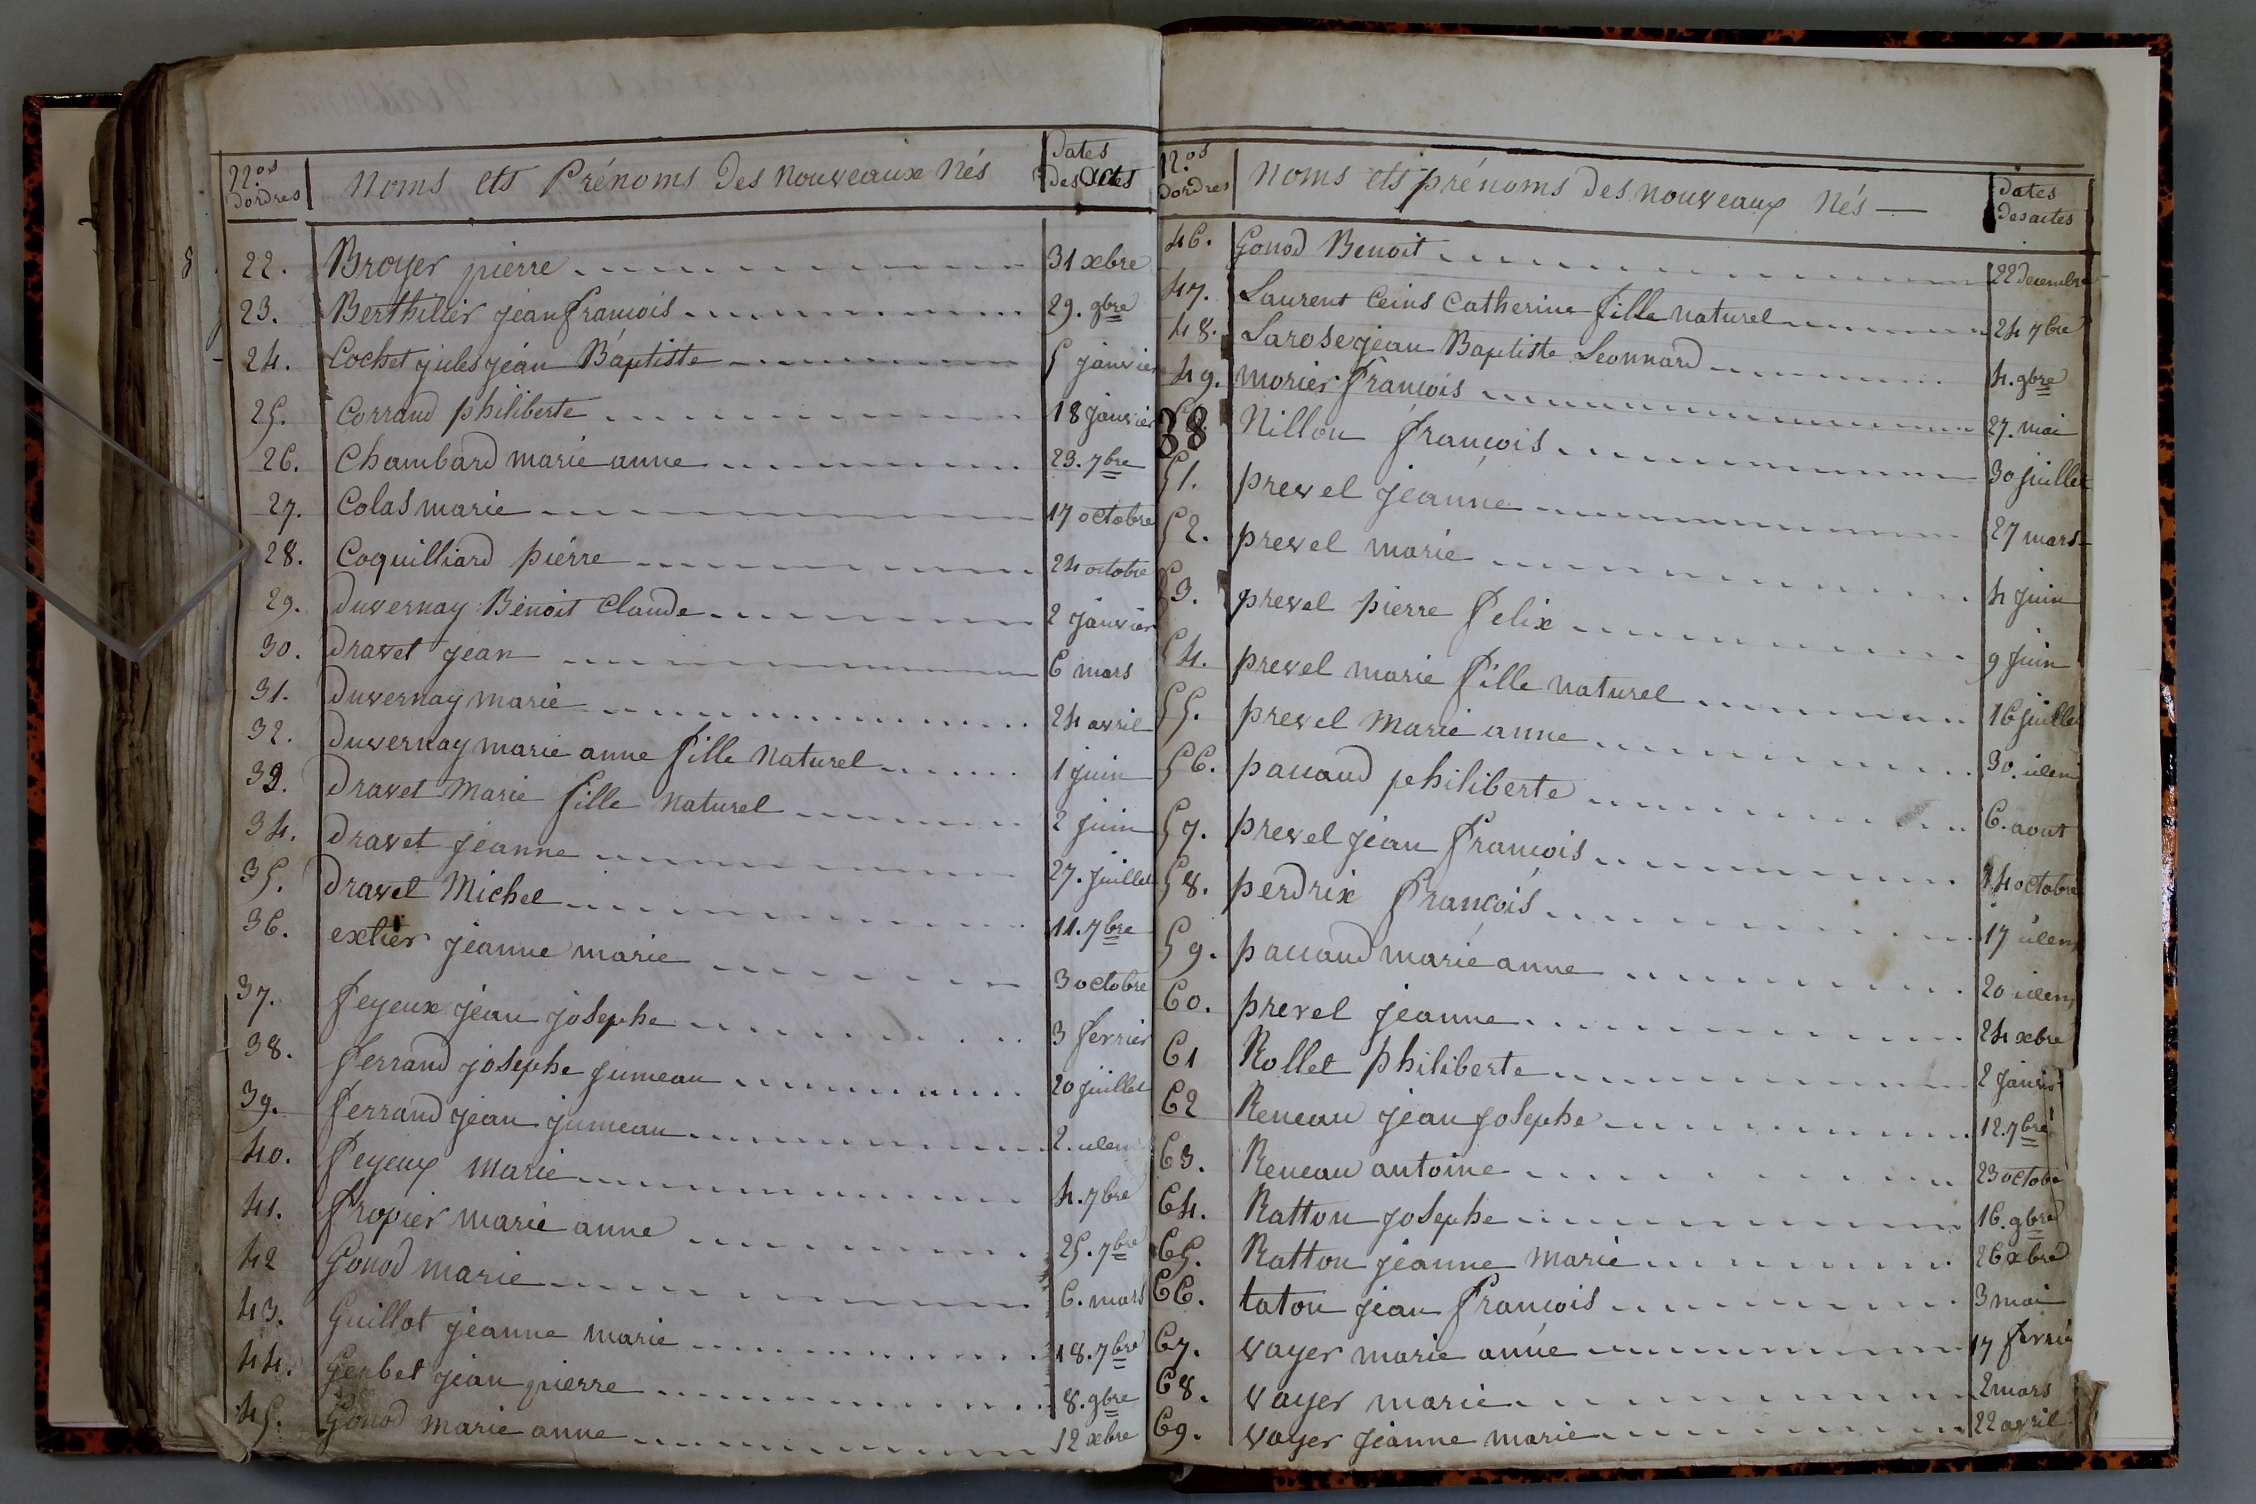 N.os d'ordres Noms ets Prénoms des nouveaux Nés Dates des actes
22. Broyer pierre 31 xbre
23. Berthilier jean francois 29. gbre
24. Cochet jules jéan Baptiste 5 janvier
25. Corrand philiberte 18 Janvier
26. Chambard marie anne 23. 7bre
27. Colas marie 17 octobre
28. Coquilliard piérre 24 octobre
29. Duvernay Bénoit Claude 2 janvier
30. Dravet jean 6 mars
31. Duvernay marie 24 avril
32. Duvernay marie anne fille Naturel 1 juin
33. Dravet Marie fille naturel 2 juin
34. Dravet jéanne 27. Juillet
35. Dravet Michel 11. 7bre
36. extier jéanne marie 3 octobre
37. feyeux jéan josephe 3 fevrier
38. ferrand josephe jumeau 20 juillet
39. ferrand jéan jumeau 2. idem
40. feyeux marie 4. 7bre
41. fropier marie anne 25. 7bre
42 Gonod marie 6. mars
43. Guillot jéanne marie 18. 7bre
44. Gerbet jéan pierre 8. gbre
45. Gonod marie anne 12 xbre
N.os d'ordres Noms ets prénoms des nouveaux Nés dates des actes
46. Gonod Benoit 22 decembre
47. Laurent Ceins Catherine fille naturel 24 7bre
48. Larose jéan Baptiste Leonnard 4. gbre
49. morier francois 27. mai
38 Nillon françois 30 juillet
51. prevel jéanne 27 mars
52. prevel marie 4 juin
53. prevel pierre felix 9 Juin
54. prevel marie fille naturel 16 juillet
55. prevel Marie anne 30. idem
56. pauaud philiberte 6. aout
57. prevel jéan francois 14 octobre
58. perdrix francois 17 idem
59. pauaud marie anne 20 idem
60. prevel jéanne 24 xbre
61 Rollet philiberte 2 Janvier
62 Reneau jéan josephe 12. 7bre
63. Reneau antoine 23 octobre
64. Ratton josephe 16. gbre
65. Ratton jéanne marie 26 xbre
66. taton jéan francois 3 mai
67. vayer marie anne 17 fevrier
68. vayer marie 2 mars
69. vayer jéanne marie 22 avril